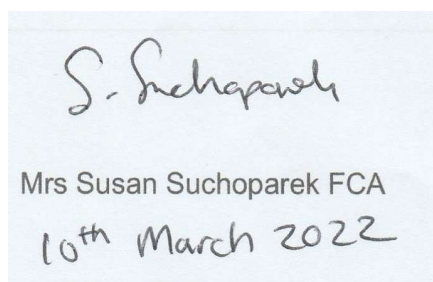 S. Suchoparek
Mrs Susan Suchoparek FCA
10th March 2022